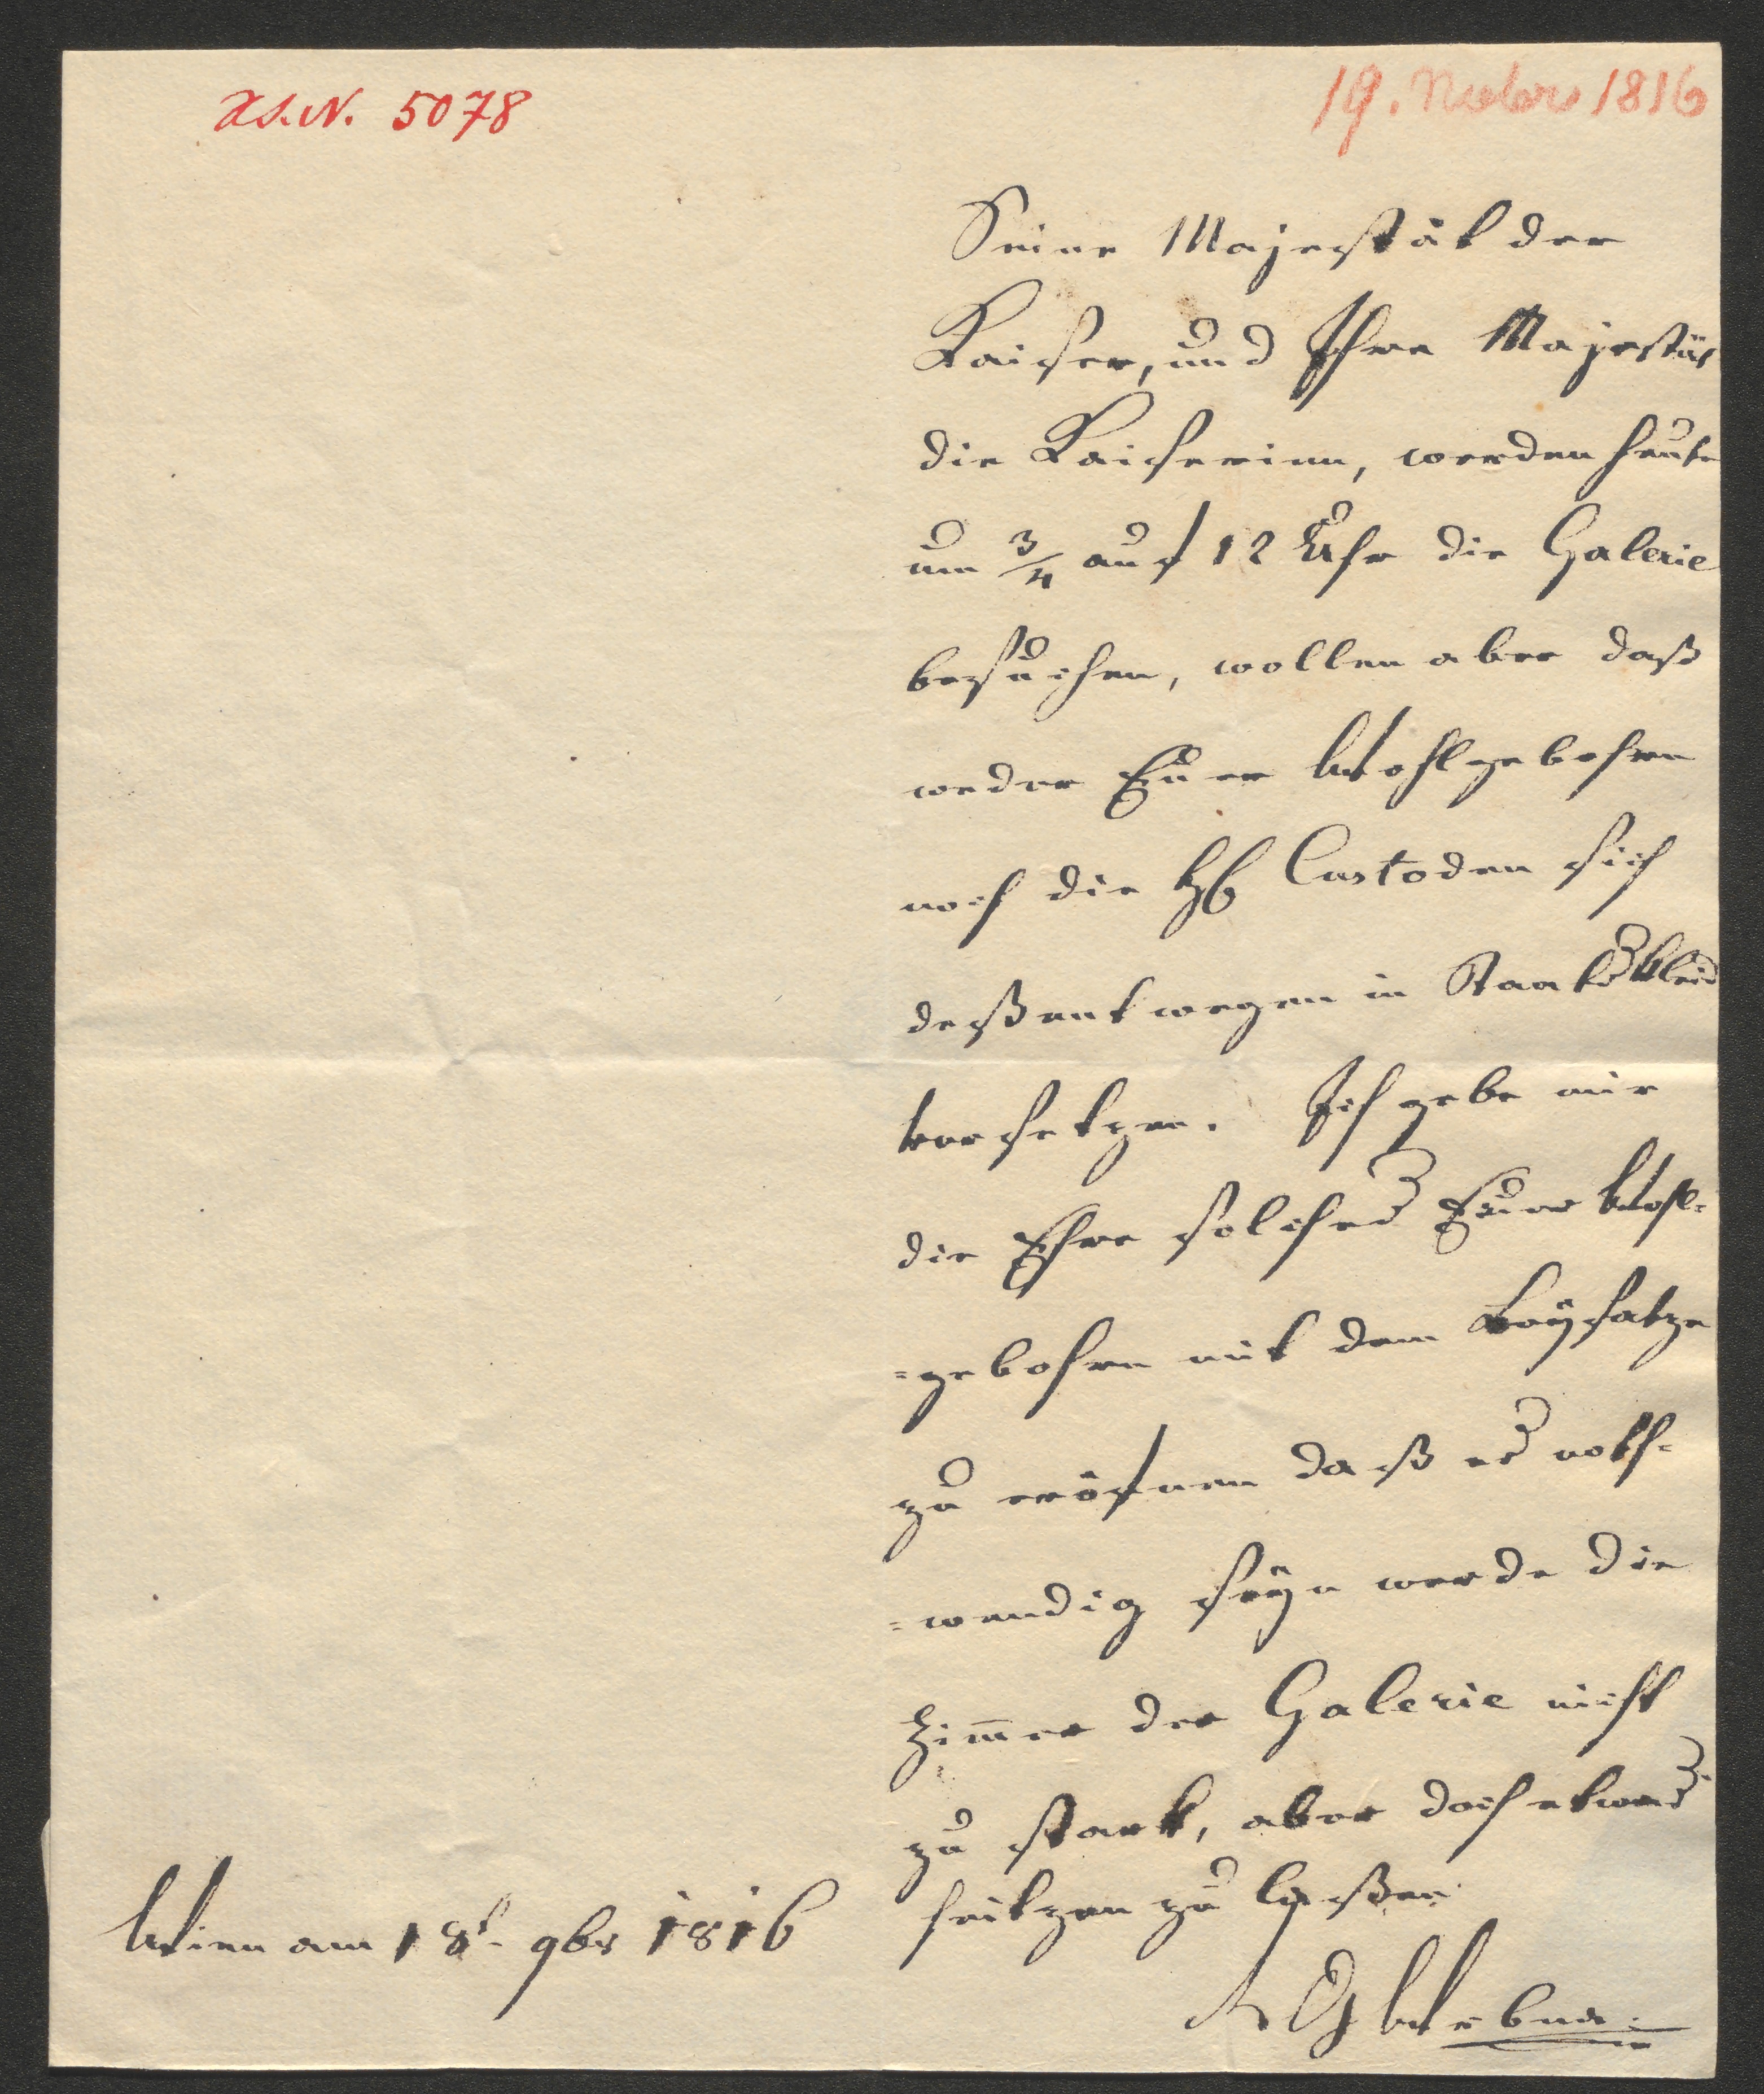 H.S.N. 5078
19. Nvbr 1816
Seine Majestät der
Kaiser, und Ihre Majestät
die Kaiserinn, werden heute
um 3/4 auf 12 Uhr die Galerie
besuchen, wollen aber daß
weder Euer Wohlgebohrn
noch die HH Custoden sich
deßentwegen in Staatskleid
versetzen. Ich gebe mir
die Ehre solches Euer Wohl-
=gebohrn mit dem Beysatze
zu eröfnen daß es noth-
=wendig seyn werde die
Zim̅er der Galerie nicht
zu stark, aber doch etwas
heitzen zu laßen.
Wien am 18t. 9br 1816
Wrbna